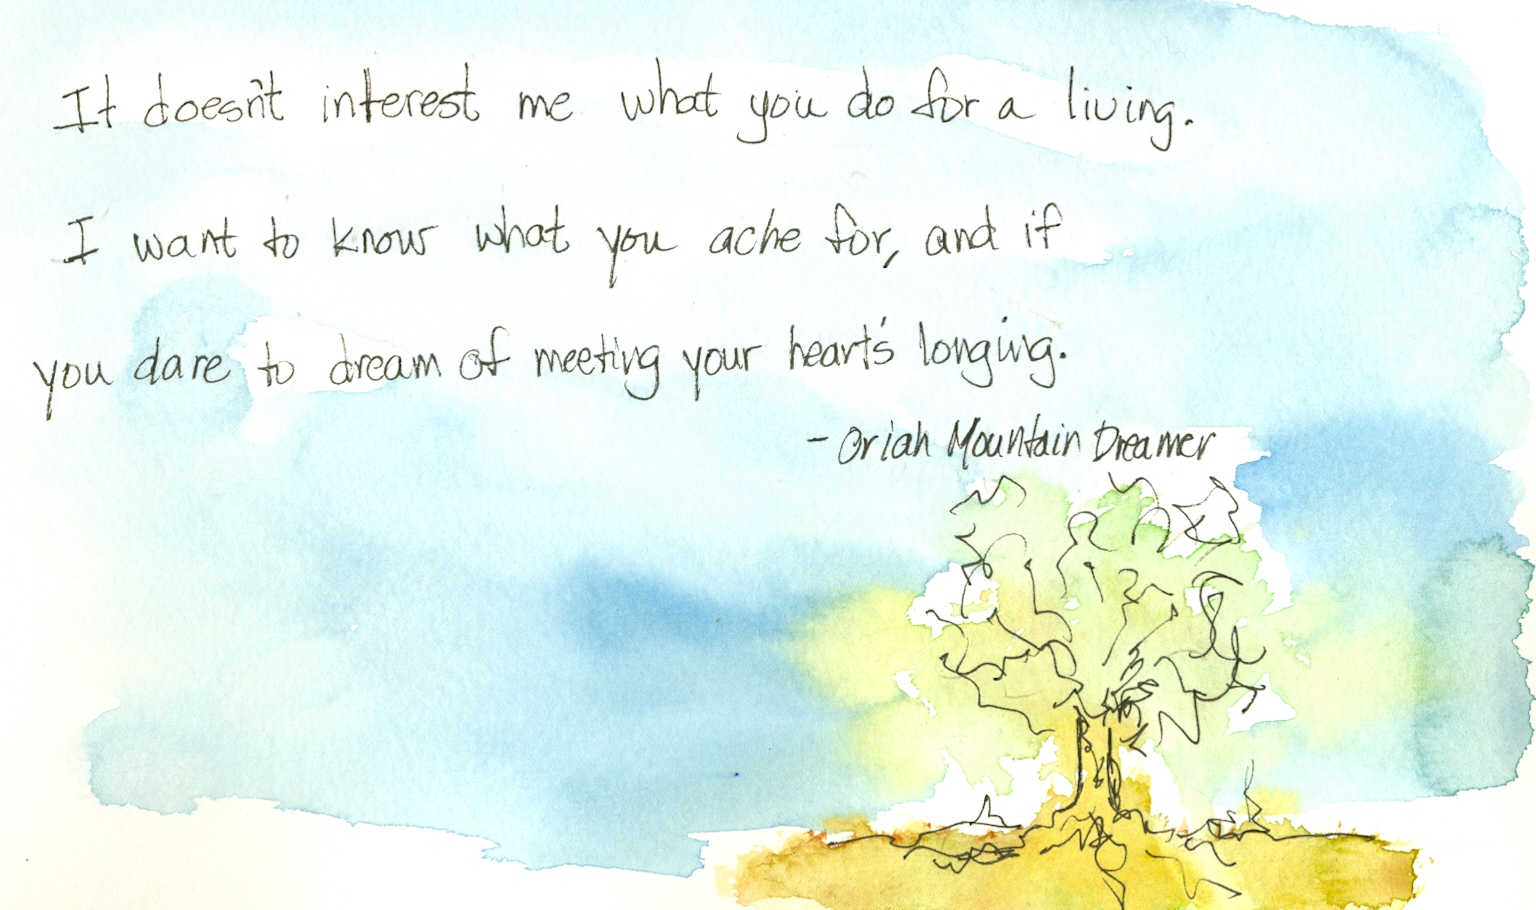 It doesn't interest me what you do for a living.
I want to know what you ache for, and if
you dare to dream of meeting your heart's longing.
- Oriah Mountain Dreamer